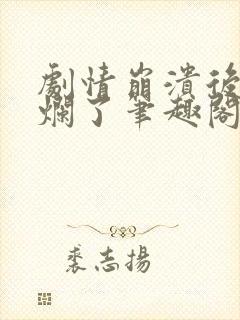 劇情崩潰後
爛了筆趣閣
裘志揚